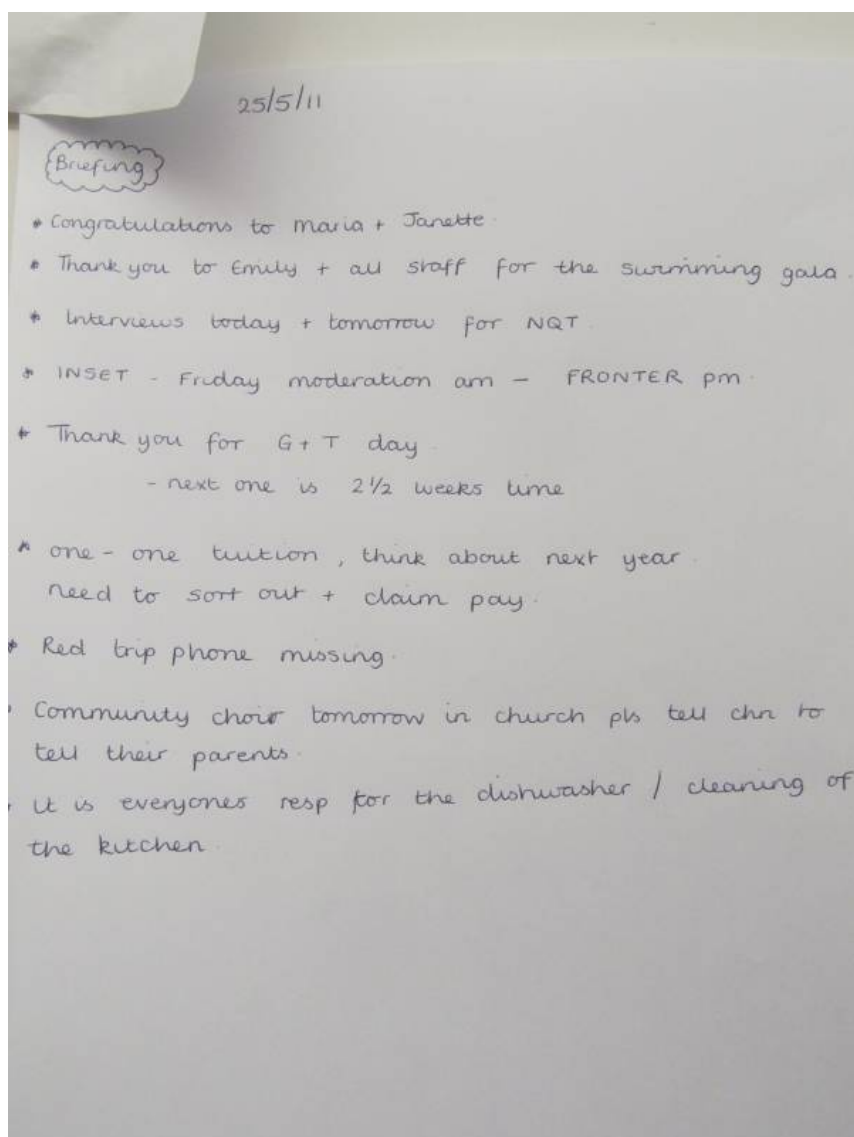 25/5/11
Briefing
* Congratulations to Maria + Janette.
* Thank you to Emily + all staff for the swimming gala.
* Interviews today + tomorrow for NQT.
* INSET - Friday moderation am - FRONTER pm.
* Thank you for G + T day.
- next one is 2 1/2 weeks time
* one - one tuition, think about next year.
need to sort out + claim pay.
* Red trip phone missing.
* Community choir tomorrow in church pls tell chn to
tell their parents.
* it is everyones resp for the dishwasher / cleaning of
the kitchen.